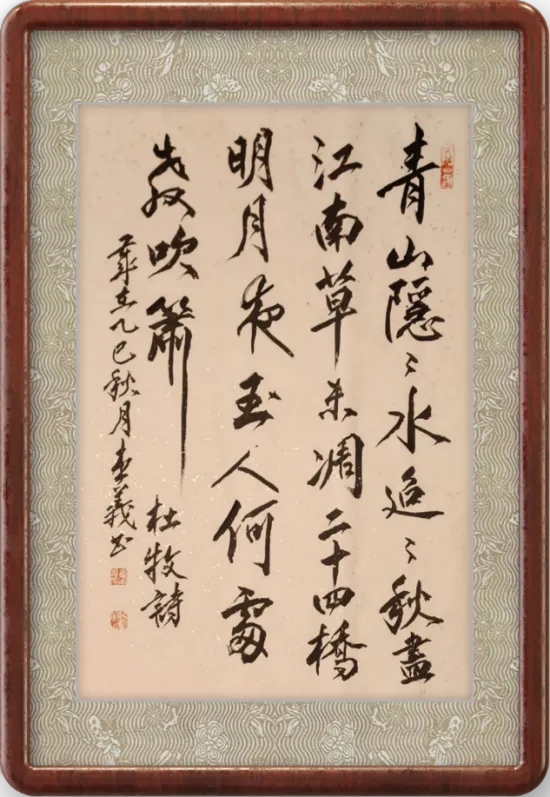 青山隱〻水迢〻秋盡
江南草未凋二十四橋
明月夜玉人何處
教吹簫 杜牧詩
歲在乙巳秋月 義书